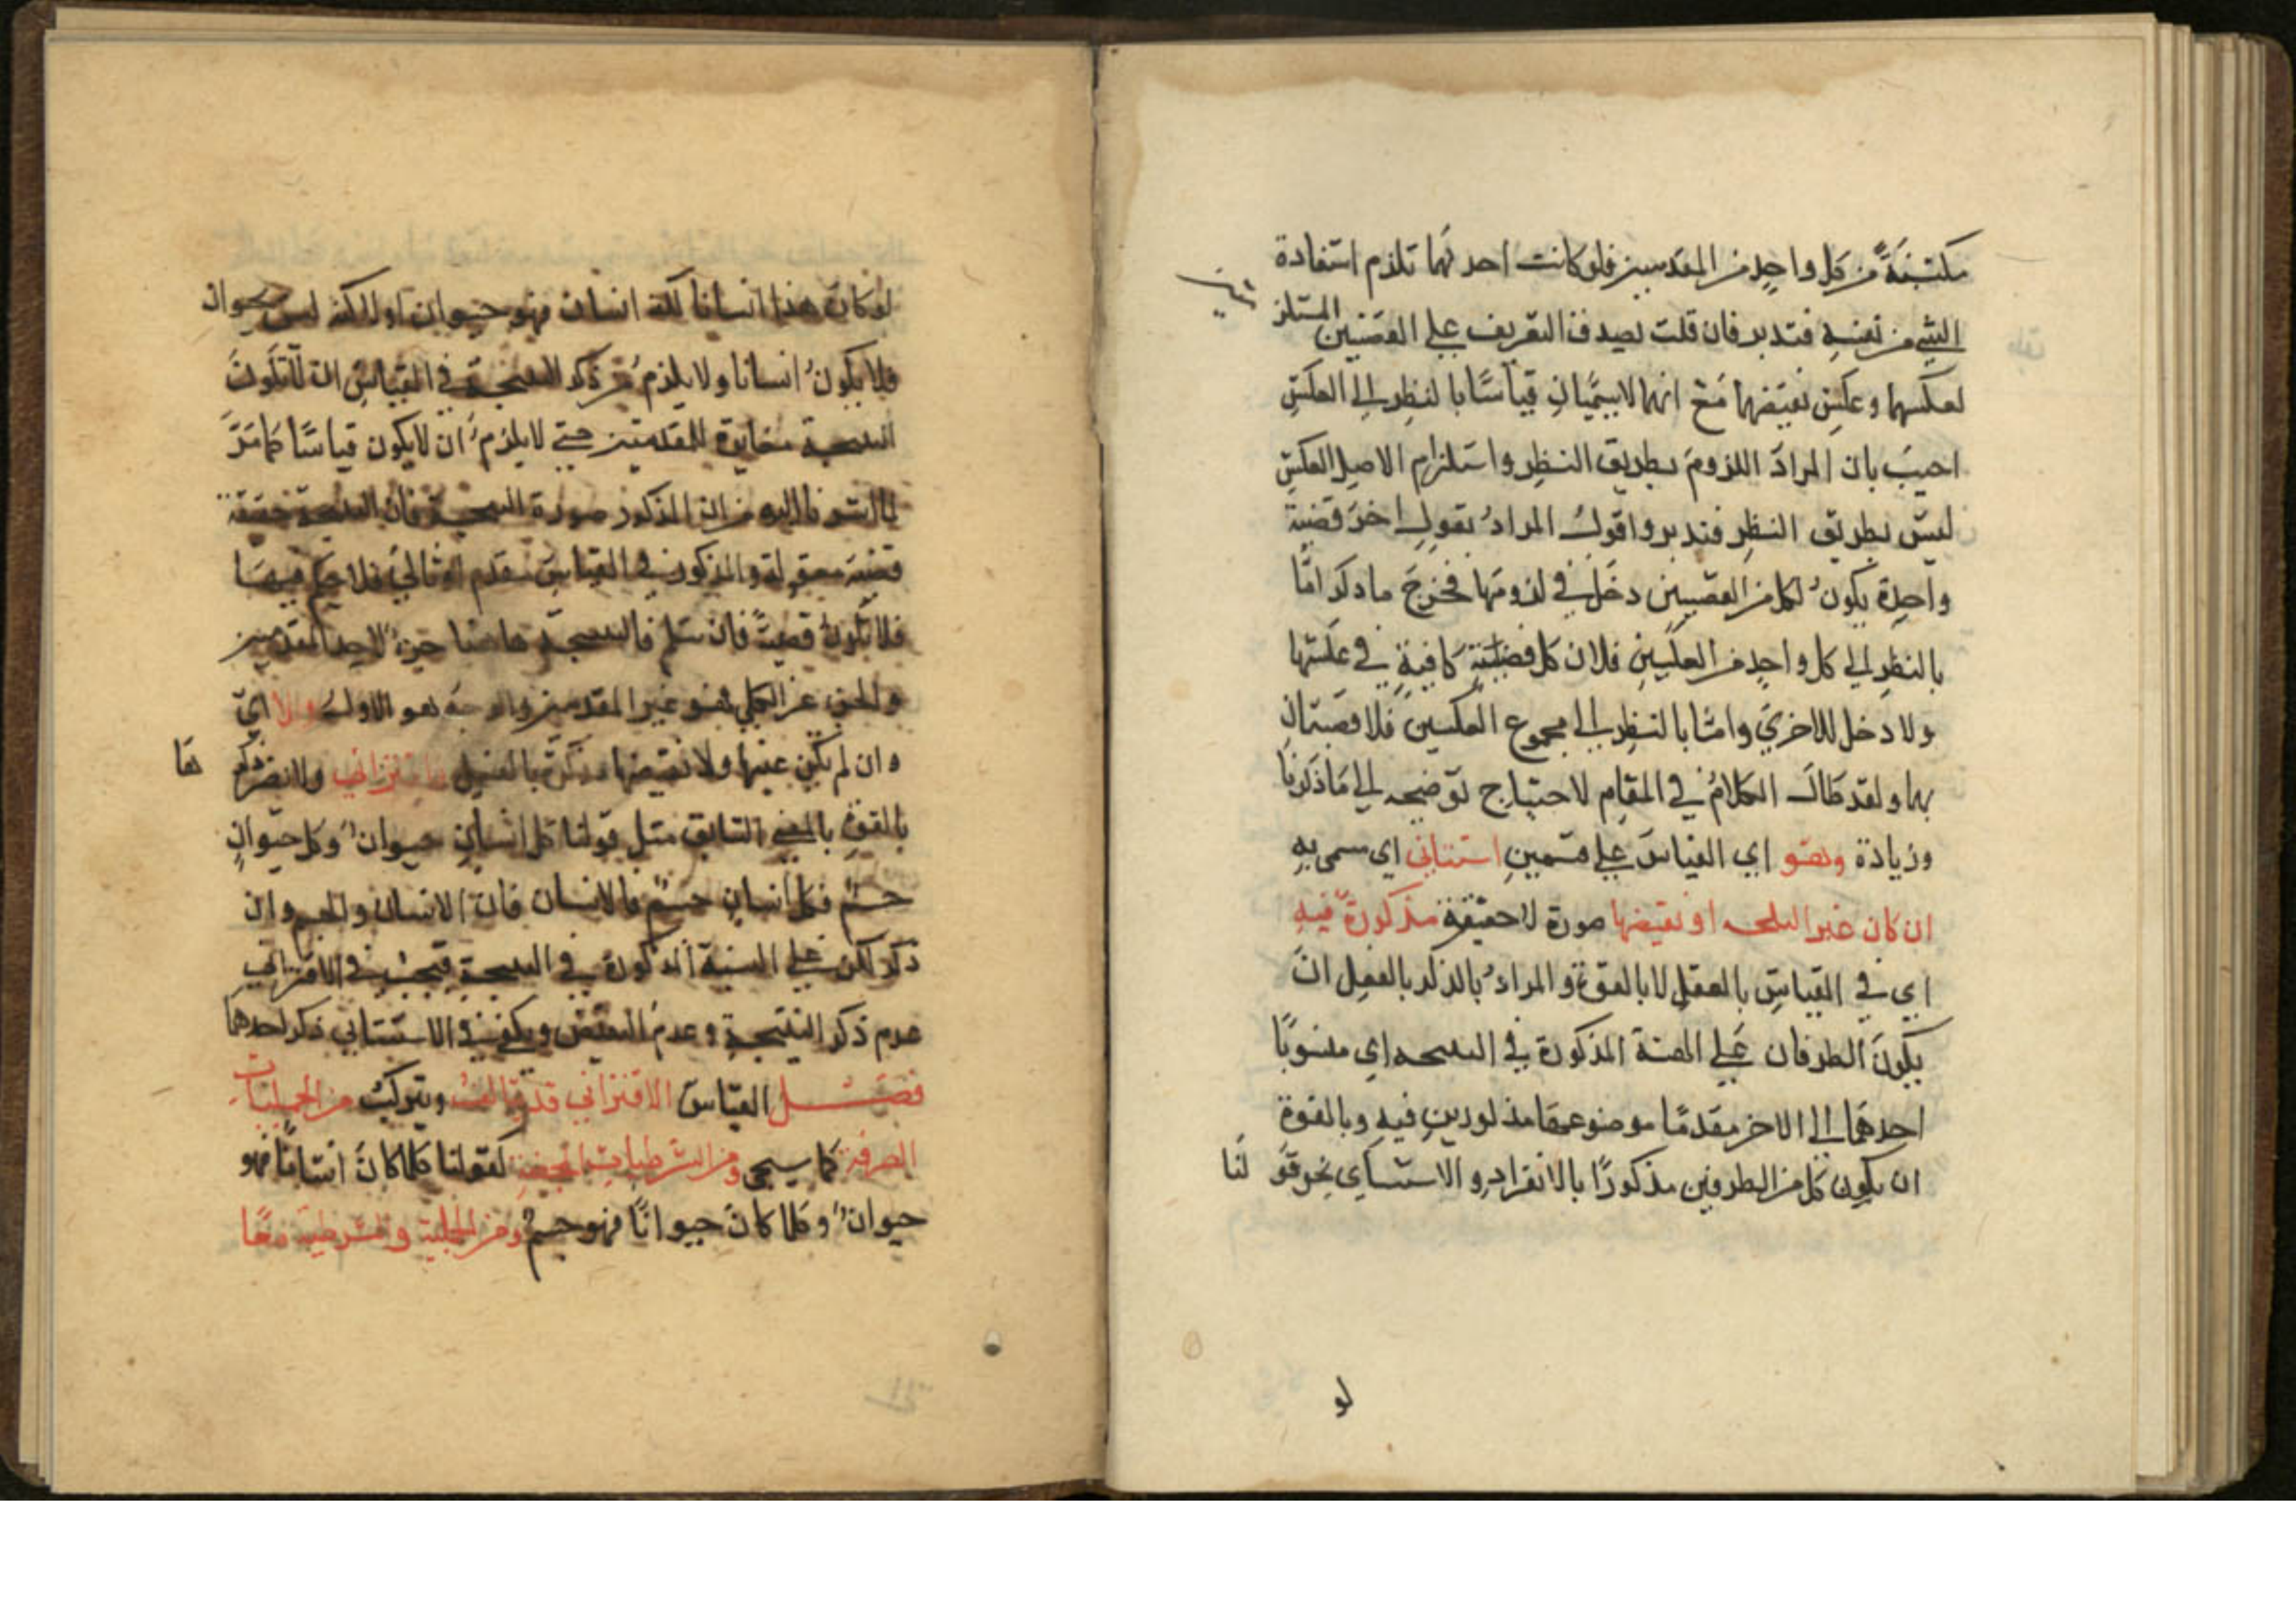 مكتسبة من كل واحد من المقدمتين فلو كانت احدىهما تلزم استفادة
الشئ من نفسه فتدبر فان قلت يصدق التعريف على القضيتين المستلز
لعكسهما وعكس نقيضهما مع انهما لا يسميان قياسا بالنظر الى العكس
اجيب بان المراد اللزوم بطريق النظر واستلزام الاصل العكس
ليس بطريق النظر فتدبر واقول المراد بقول اخر قضية
واحدة يكون لكل من القضيتين دخل في لزومها فخرج ما ذكر اما
بالنظر الى كل واحد من العكسين فلان كل قضية كافية في عكسها
ولا دخل للاخرى واما بالنظر الى مجموع العكسين فلا قضيتان
بها ولقد طال الكلام في المقام لاحتياج توضيحه الى ما ذكرنا
وزيادة وهو اي القياس على قسمين استثنائي اي سمي به
ان كان عين النتيجة او نقيضها صورة لا حقيقة مذكورة فيه
اي في القياس بالفعل لا بالقوة والمراد بالذكر بالفعل ان
يكون الطرفان على الهيئة المذكورة في النتيجة اي منسوبا
احدهما الى الاخر مقدما موضوعهما مذكورين فيه وبالقوة
ان يكون كل من الطرفين مذكورا بالانفراد والاستثنائي نحو قو لنا
لو
لو كان هذا انسانا لكنه انسان فهو حيوان او لكنه ليس بحيوان
فلا يكون انسانا ولا يلزم من ذكر النتيجة في القياس ان لا تكون
النتيجة مغايرة للمقدمتين حتى لا يلزم ان لا يكون قياسا كما مر
المذكور صورة النتيجة فان النتيجة حقيقة
قضية معقولة والمذكور في القياس مقدم او تالي فلا حكم فيهما
فلا تكون قضية فان سلم فالنتيجة هاهنا جزء لاحد المقدمتين
والجزء غير الكل فهو غير المقدمتين والوجه هو الاول والا اي
وان لم يكن عينها ولا نقيضها مذكورة بالفعل فاقتراني ها
بالقوة بالمعنى السابق مثل قولنا كل انسان حيوان وكل حيوان
جسم فكل انسان جسم فالانسان فان الانسان والجسم وان
ذكر لكن على الهيئة المذكورة في النتيجة فيجب في الاقتراني
عدم ذكر النتيجة وعدم النقيض ويكفي في الاستثنائي ذكر احدهما
فصل القياس الاقتراني قد يتالف ويتركب من الحمليات
الصرفة كما سيجى ومن الشرطيات المحضة كقولنا كلما كان انسانا فهو
حيوان وكلما كان حيوانا فهو جسم ومن الحملية والشرطية معا